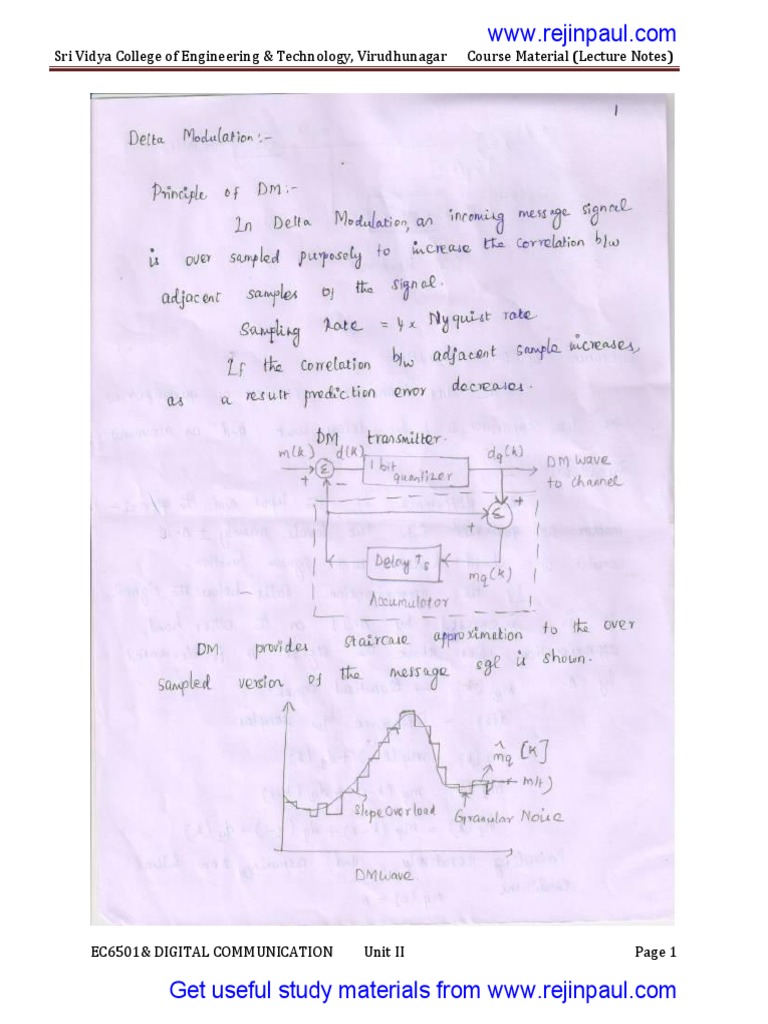 www.rejinpaul.com
Sri Vidya College of Engineering & Technology, Virudhunagar Course Material (Lecture Notes)
1
Delta Modulation:-
Principle of DM:-
In Delta Modulation, an incoming message signal
is over sampled purposely to increase the correlation b/w
adjacent samples of the signal.
Sampling Rate = 4 x Nyquist rate
If the correlation b/w adjacent sample increases,
as a result prediction error decreases.
DM transmitter.
m(k) d(k) 1 bit quantizer dq(k) DM wave
to channel
Σ
+
-
Σ
+
+
Delay Ts
mq(k)
Accumulator
DM provides staircase approximation to the over
sampled version of the message sgl is shown.
m̂q [k]
m(t)
Slope Over load
Granular Noise
DM wave
EC6501& DIGITAL COMMUNICATION Unit II Page 1
Get useful study materials from www.rejinpaul.com